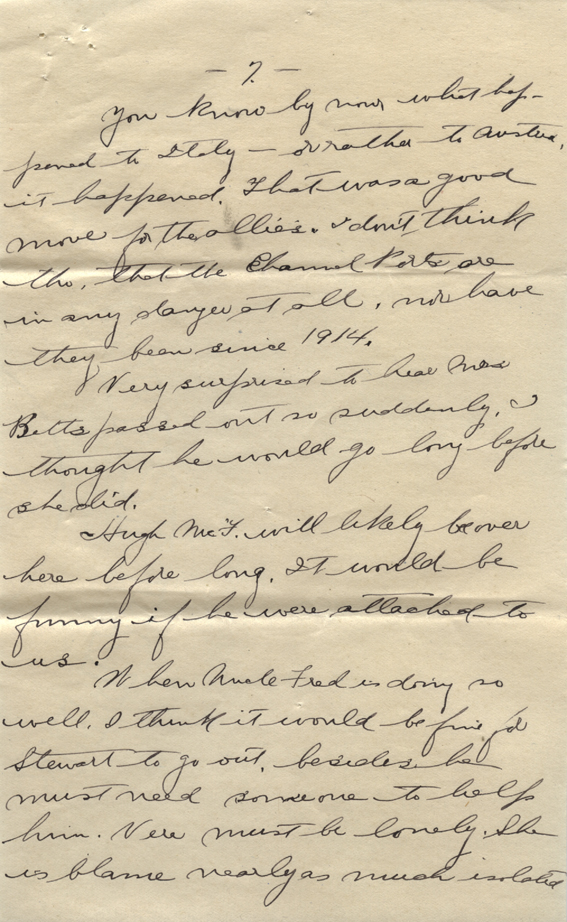 - 7. -
You know by now what hap-
pened to Italy - or rather to Austria,
it happened. That was a good
move for the allies. I don't think
tho, that the Channel Ports are
in any danger at all, nor have
they been since 1914.
Very surprised to hear Mrs
Betts passed out so suddenly. I
thought he would go long before
she did.
Hugh McF. will likely be over
here before long. It would be
funny if he were attached to
us.
When Uncle Fred is doing so
well. I think it would be fine for
Stewart to go out, besides he
must need someone to help
him. Vere must be lonely. She
is blame nearly as much isolated